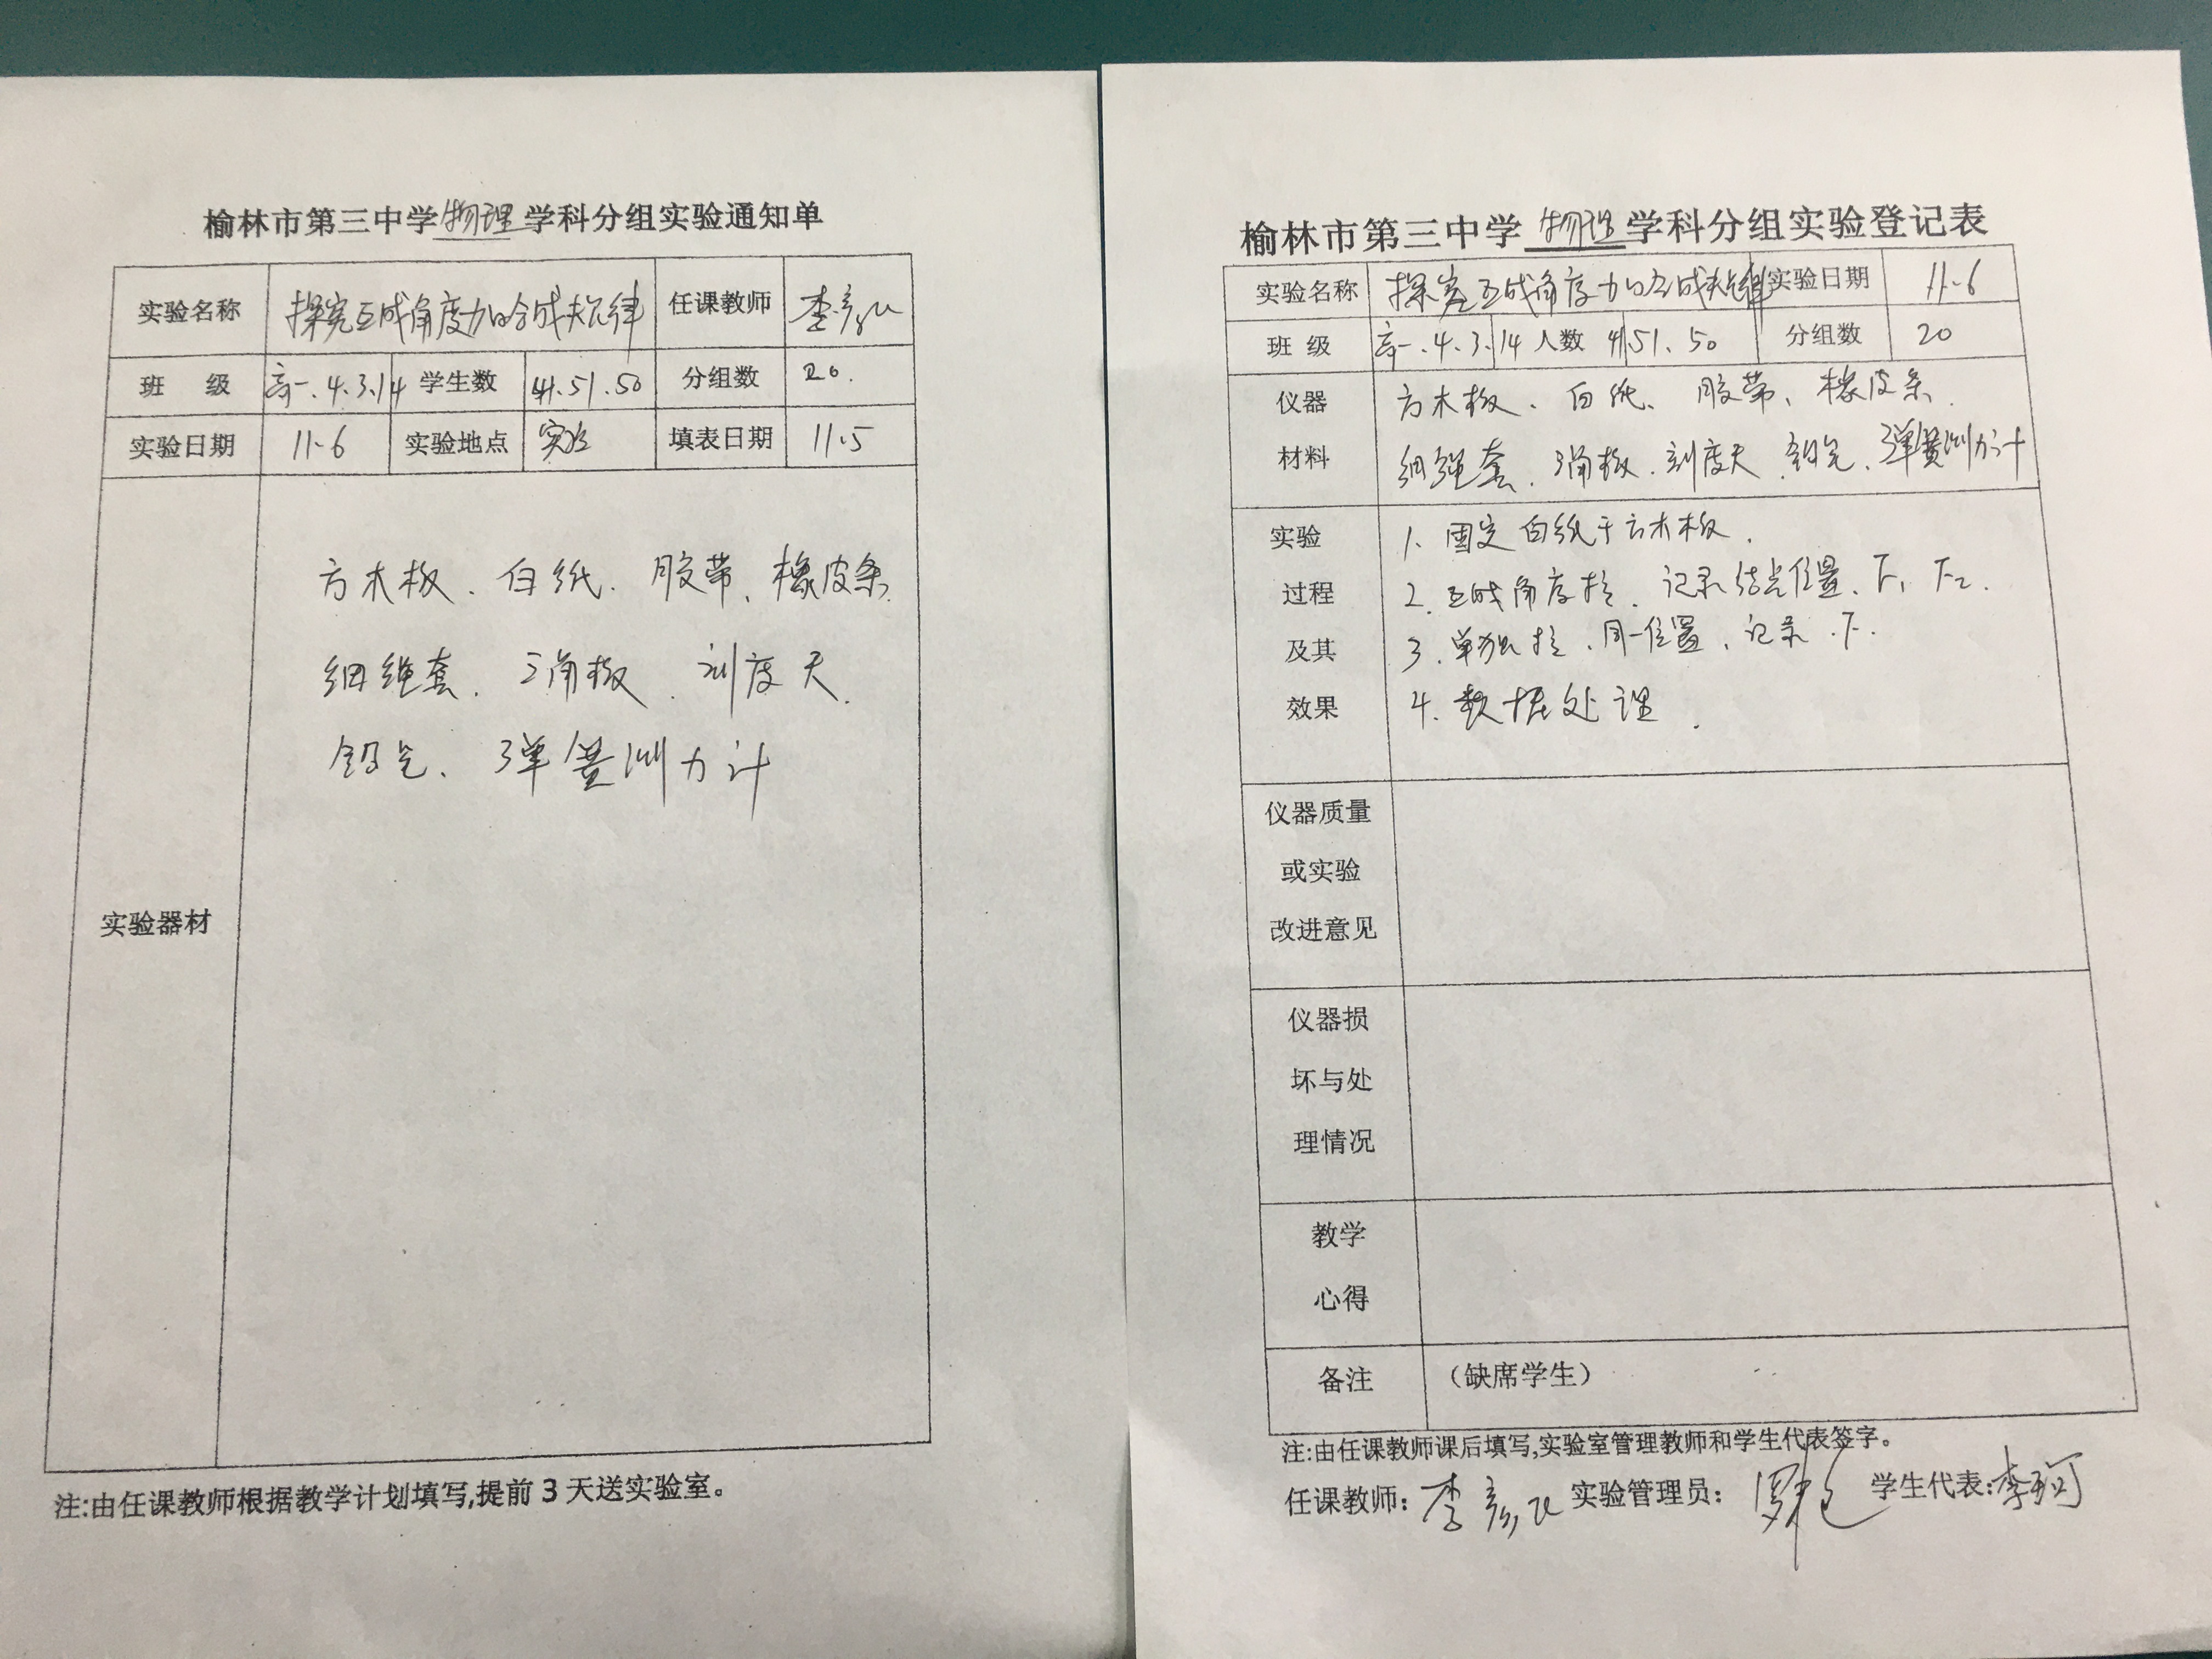 榆林市第三中学物理学科分组实验通知单
实验名称 探究互成角度力的合成规律 任课教师 李彦
班 级 高一.4.3.14 学生数 41.51.50 分组数 20.
实验日期 11.6 实验地点 实验 填表日期 11.5
实验器材
方木板、白纸、胶带、橡皮条
细绳套、三角板、刻度尺
铅笔、弹簧测力计
注:由任课教师根据教学计划填写,提前3天送实验室。
榆林市第三中学物理学科分组实验登记表
实验名称 探究互成角度力的合成规律 实验日期 11.6
班 级 高一.4.3.14 人数 41.51.50 分组数 20
仪器 方木板、白纸、胶带、橡皮条
材料 细绳套、三角板、刻度尺、铅笔、弹簧测力计
实验 1. 固定白纸于方木板.
过程 2. 互成角度拉、记录结点位置、F₁ F₂.
及其 3. 单独拉、同一位置、记录.F.
效果 4. 数据处理.
仪器质量
或实验
改进意见
仪器损
坏与处
理情况
教学
心得
备注 （缺席学生）
注:由任课教师课后填写,实验室管理教师和学生代表签字。
任课教师: 李彦 实验管理员: 学生代表: 李珂